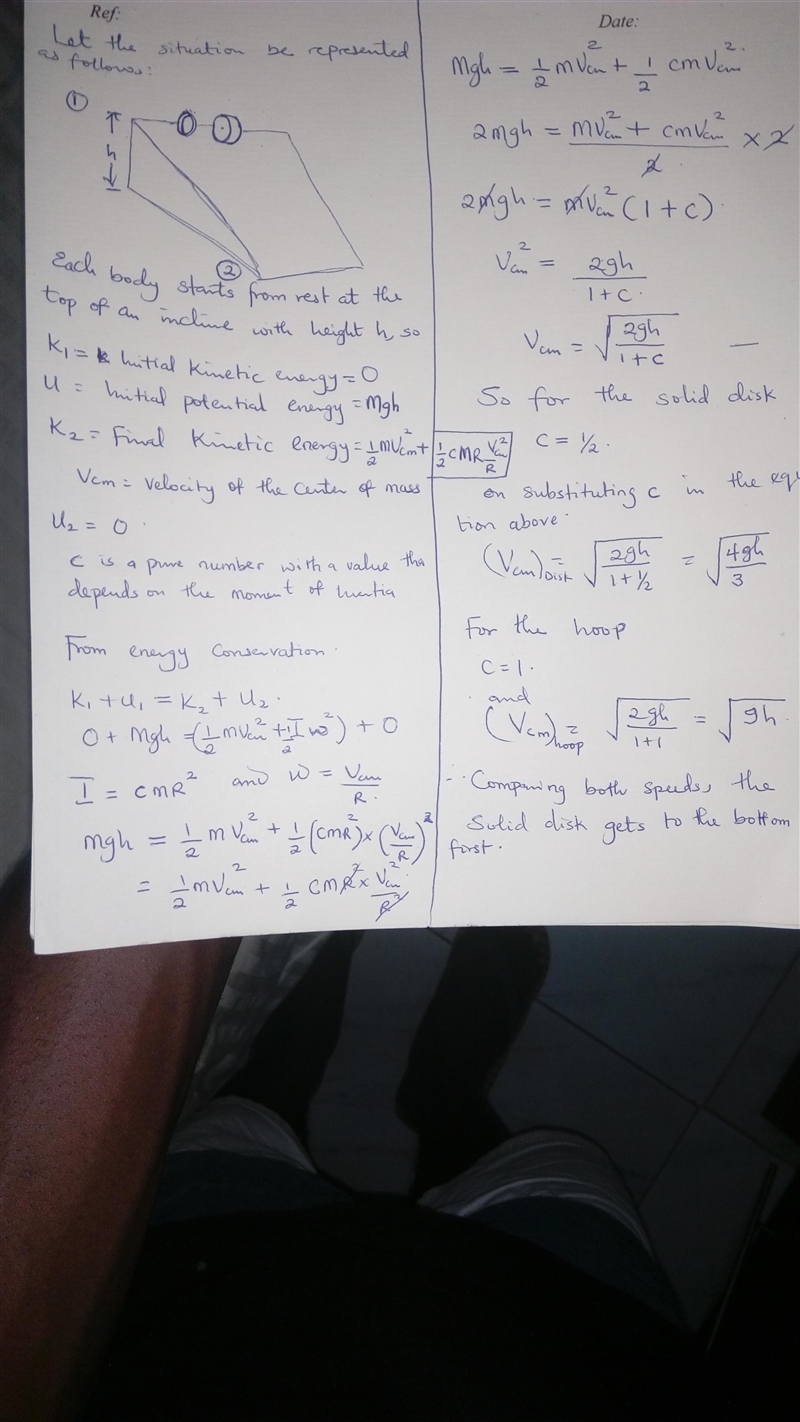 Ref:
Let the situation be represented
as follows:
①
h
②
Each body starts from rest at the
top of an incline with height h, so
K₁ = Initial kinetic energy = 0
U = Initial potential energy = Mgh
K₂ = Final kinetic energy = 1/2 mVcm² + 1/2 CMR Vcm²/R
Vcm = Velocity of the center of mass
U₂ = 0
C is a pure number with a value tha
depends on the moment of Inertia
From energy conservation.
K₁ + U₁ = K₂ + U₂.
0 + Mgh = (1/2 mVcm² + 1/2 I ω²) + 0
I = CMR² and ω = Vcm/R.
mgh = 1/2 m Vcm² + 1/2 (CMR²) × (Vcm/R)²
= 1/2 mVcm² + 1/2 CMR² × Vcm²/R²
Date:
Mgh = 1/2 mVcm² + 1/2 CmVcm².
2mgh = (mVcm² + CmVcm²)/2 × 2
2mgh = mVcm² (1 + C)
Vcm² = 2gh/(1 + C.)
Vcm = √(2gh/(1 + C)) —
So for the solid disk
C = 1/2.
on substituting C in the equ
tion above.
(Vcm)Disk = √(2gh/(1 + 1/2)) = √(4gh/3)
For the hoop
C = 1.
and
(Vcm)hoop = √(2gh/(1+1)) = √gh.
∴ Comparing both speeds, the
Solid disk gets to the bottom
first.